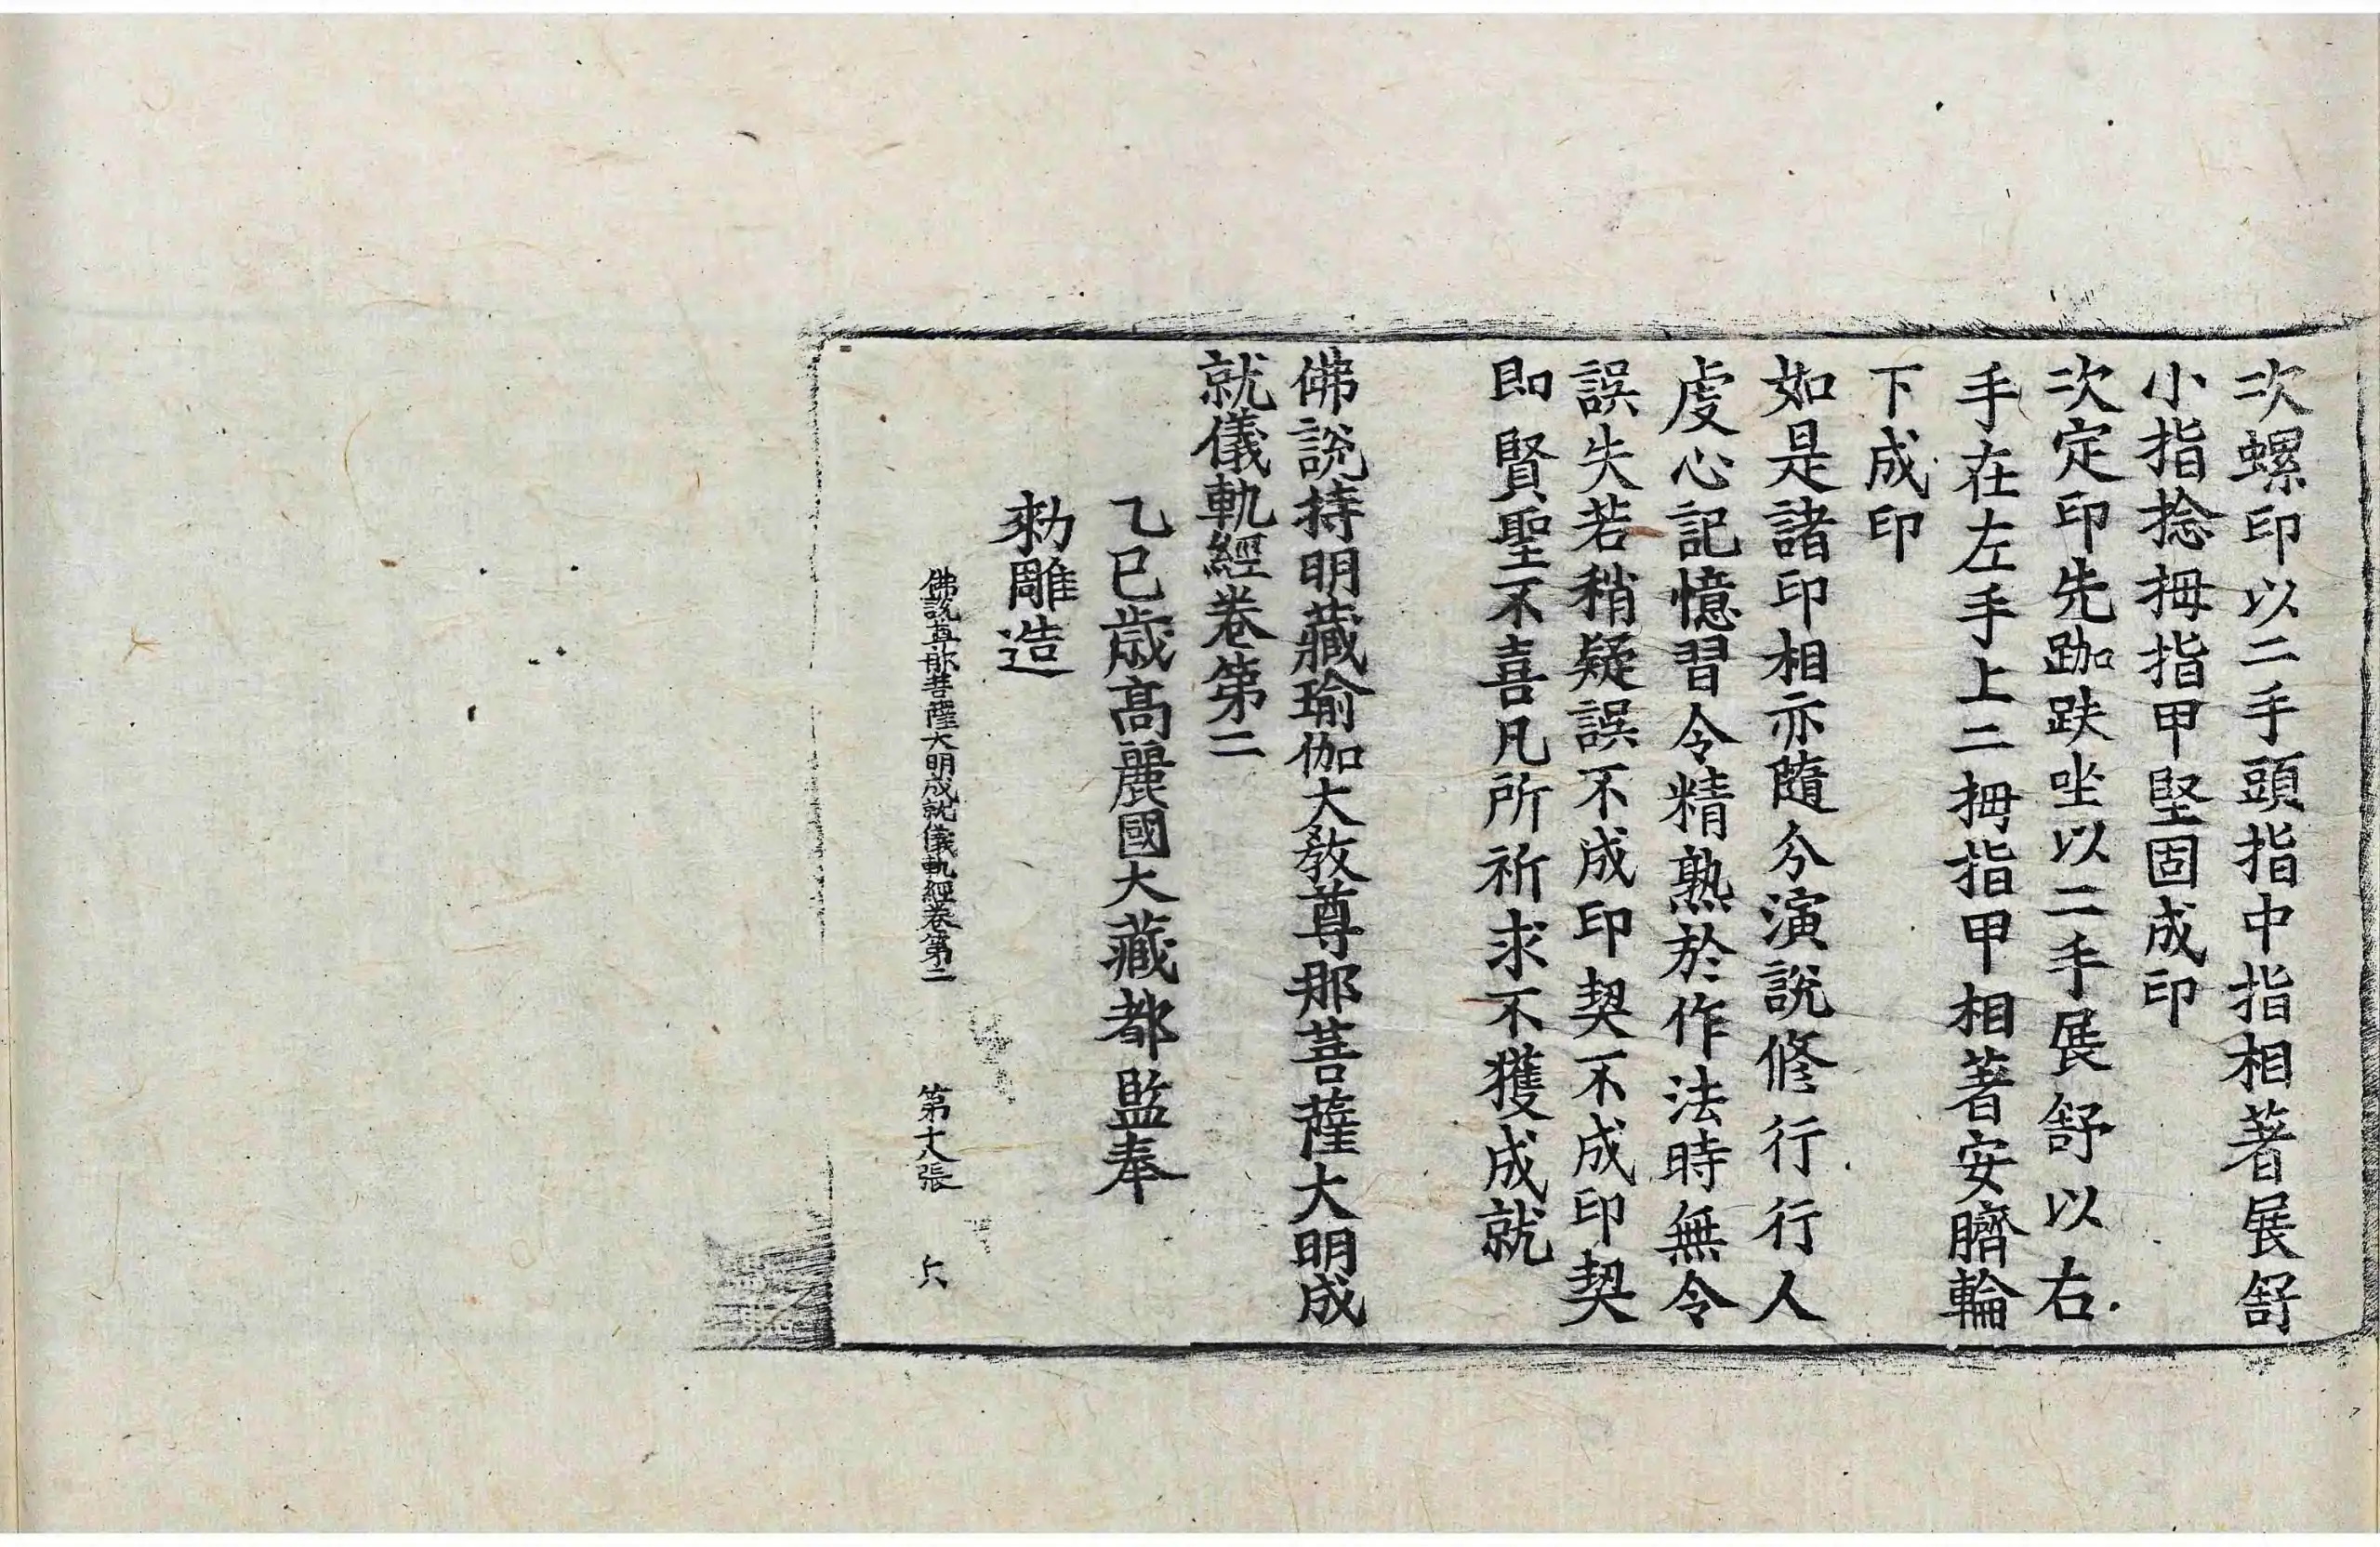 次螺印以二手頭指中指相著展舒
小指捻拇指甲堅固成印
次定印先跏趺坐以二手展舒以右
手在左手上二拇指甲相著安臍輪
下成印
如是諸印相亦隨分演說修行行人
虔心記憶習令精熟於作法時無令
誤失若稍疑誤不成印契不成印契
即賢聖不喜凡所祈求不獲成就
佛說持明藏瑜伽大教尊那菩薩大明成
就儀軌經卷第二
乙巳歳高麗國大藏都監奉
勑雕造
佛說尊那菩薩大明成就儀軌經卷第二 第十八張